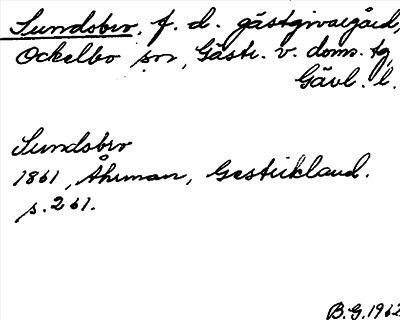 Sundsbro, f. d. gästgivaregård,
Ockelbo sn, Gästr. v. doms. tg,
Gävl. l.
Sundsbro
1861, Åhrman, Gestrikland.
s. 261.
B.G. 1962